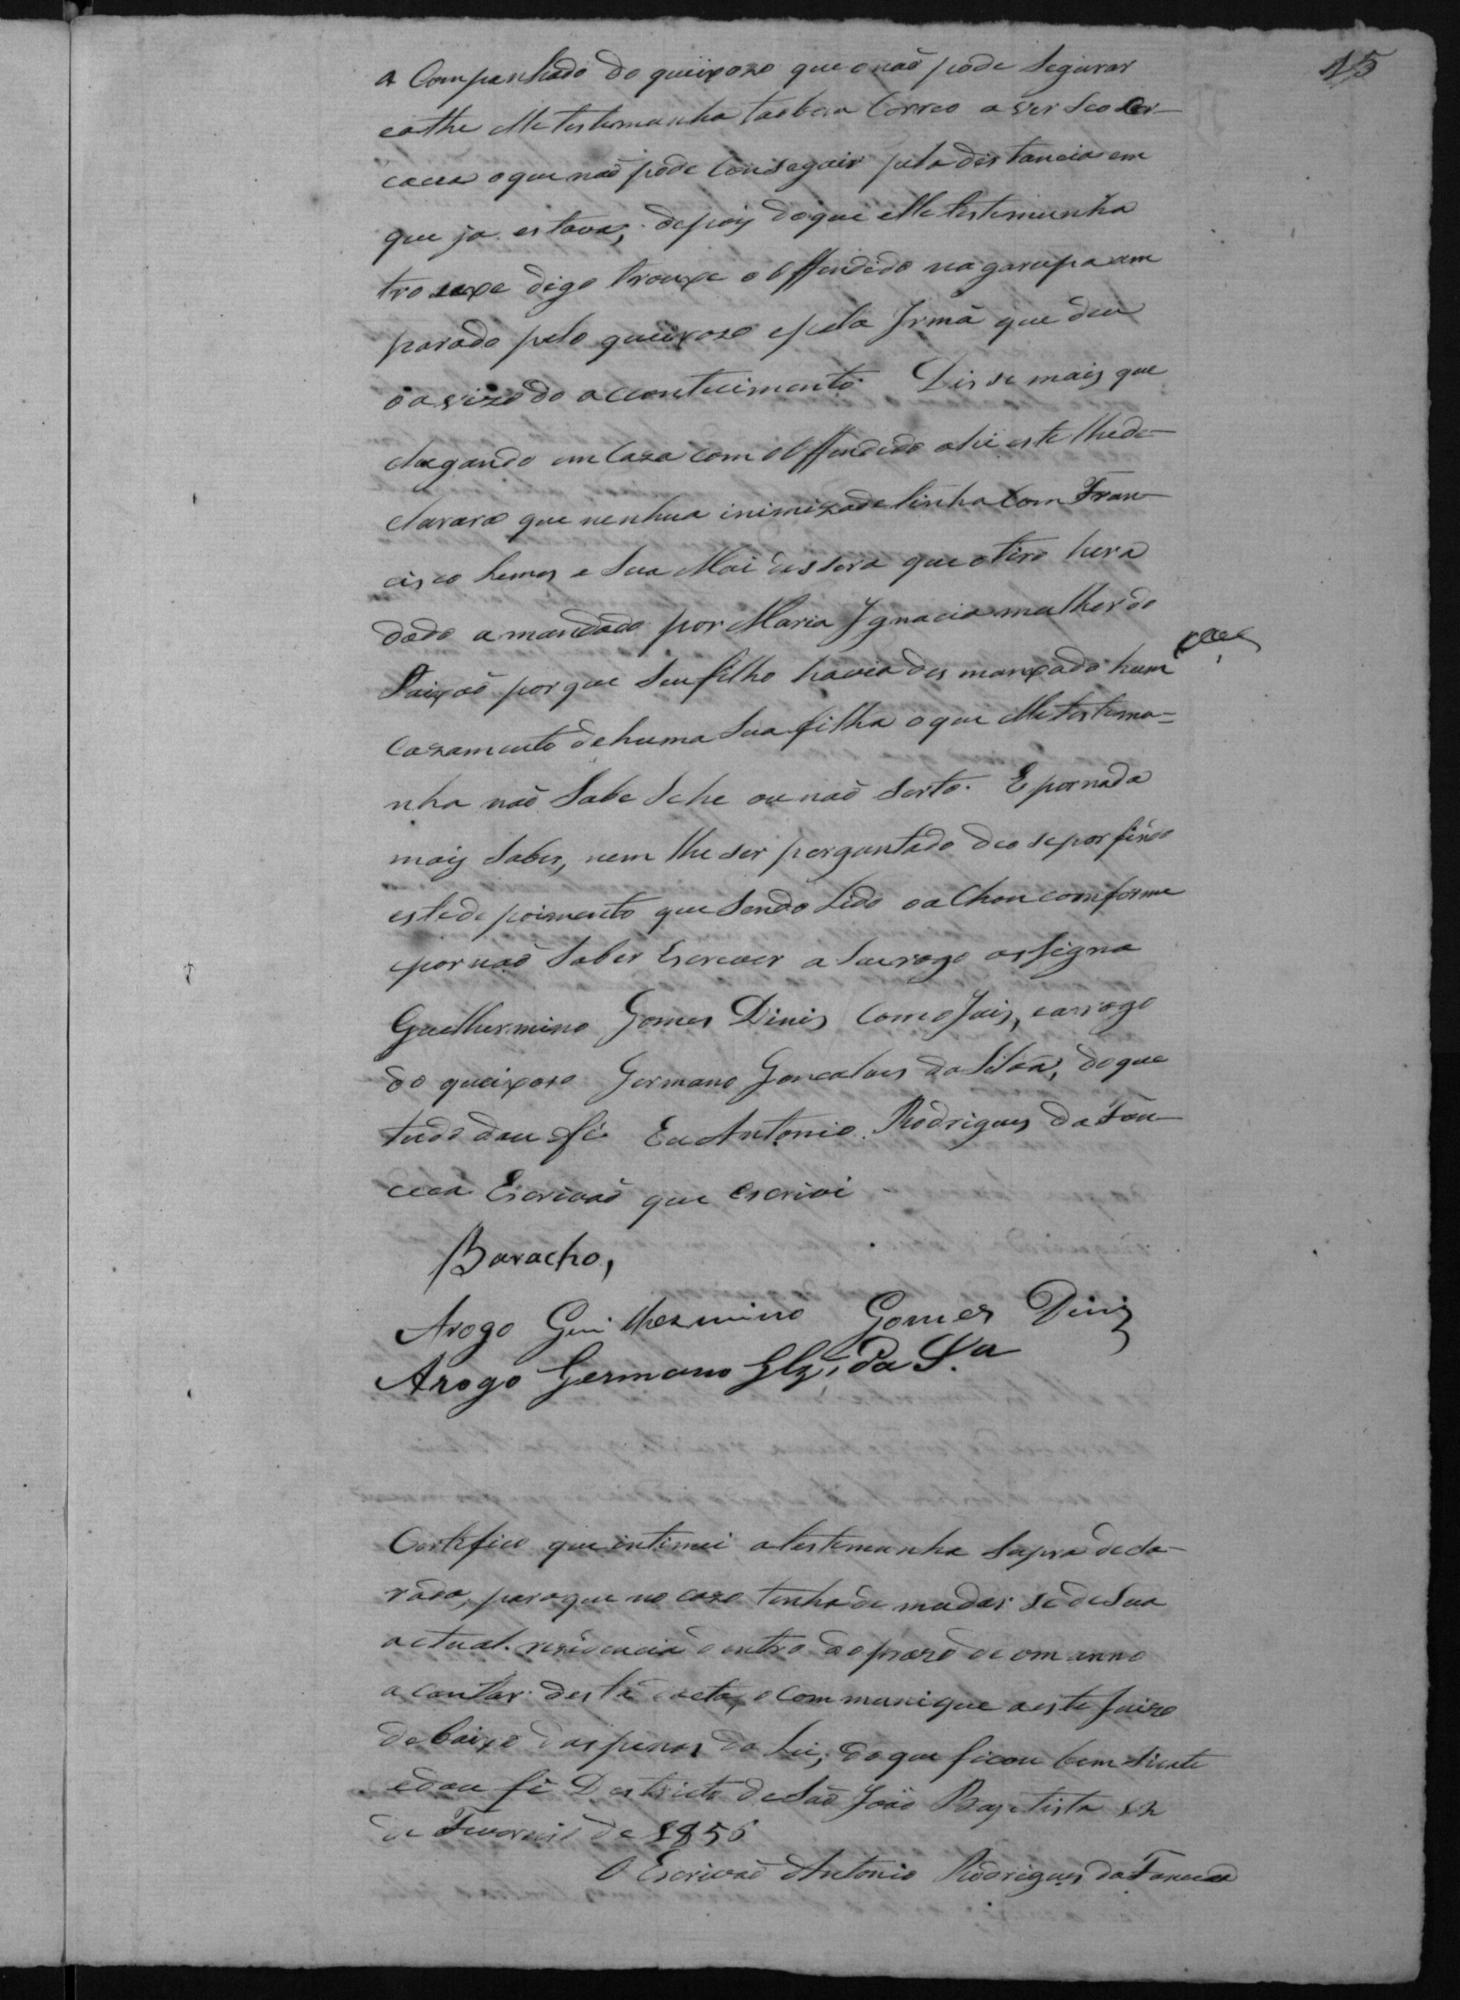 15
a Companhado do queixozo que o naõ pode Segurar
e elle testemunha taobem Correo a ver Seo Cer-
cava o que naõ pode Conseguir pela distancia em
que ja estava, depois do que elle testemunha
trouxe digo trouxe o Offendido na garupa am
parado pelo queixozo e pela Irmã que deu
o avizo do acontecimento. Disse mais que
chegando em Caza com o Offendido ahi este lhe de-
clarara que nenhua inimizade tinha Com Fran-
cisco Lemos e Sua Mai dissera que o tiro hera
dado a mandado por Maria Ignacia mulher do
Paixaõ por que Seu filho havia desmanxado hum
Cazamento de huma Sua filha o que elle testemu-
nha naõ Sabe Se he ou naõ Serto. E por nada
mais Saber, nem lhe ser perguntado deo se por findo
este depoimento que Sendo Lido o achou comforme
e por naõ Saber Escrever a Seu rogo assigna
Guelhermino Gomes Dinis Com o Juis, e a rogo
do queixozo Germano Goncalves da Silva, do que
tudo dou fé Eu Antonio Rodrigues da Fon-
ceca Escrivaõ que escrivi
Baracho,
Arogo Guilhermino Gomes Diniz
Arogo Germano Glz, da S.a
Certifico que intimei a testemunha Supra decla-
rada, para que no cazo tenha de mudar se de Sua
actual residencia dentro do prazo de om anno
a contar desta data, o communique a este Juizo
debaixo das penas da Lei; do que ficou bem siente
e dou fé Destricto de Saõ Joaõ Baptista
de Fevereiro de 1855
O Escrivaõ Antonio Rodrigues da Fonceca